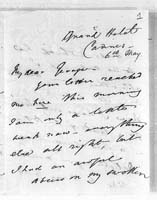 1
Grand Hotel
Cannes
6th May
My dear
your letter reached
me here this morning
I am only a
week now - every thing
else all right, but
I had an awful
abscess on my